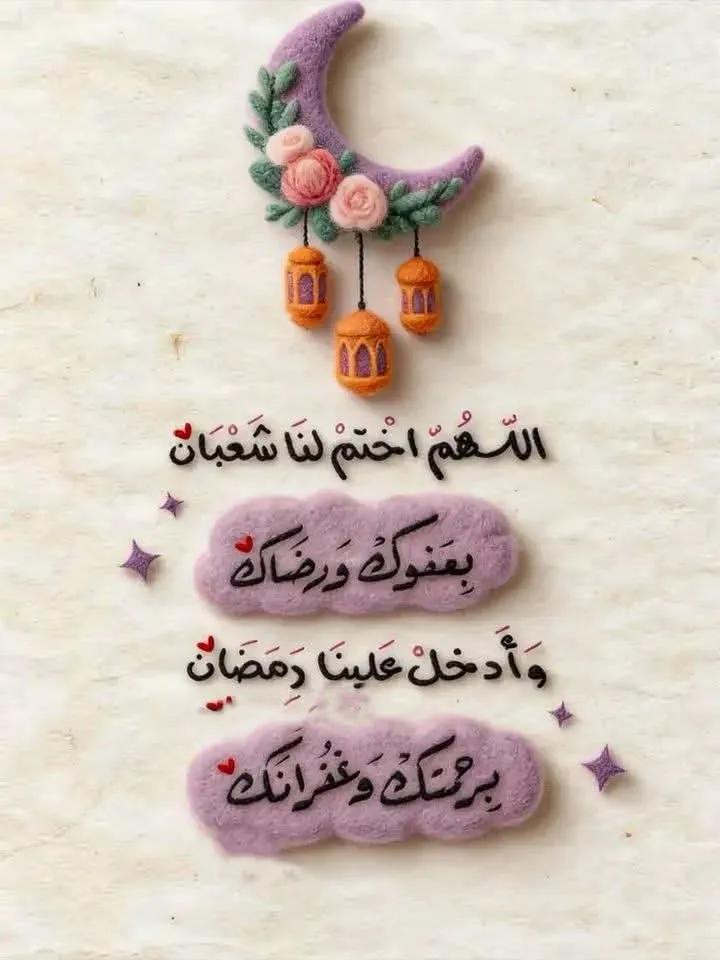 اللّهُمّ اخْتمْ لنَا شَعْبَان
بِعَفوكْ وَرضَاكْ
وَأَدخلْ عَلينَا رَمَضَان
بِرحْمتكْ وَغُفْرانَك